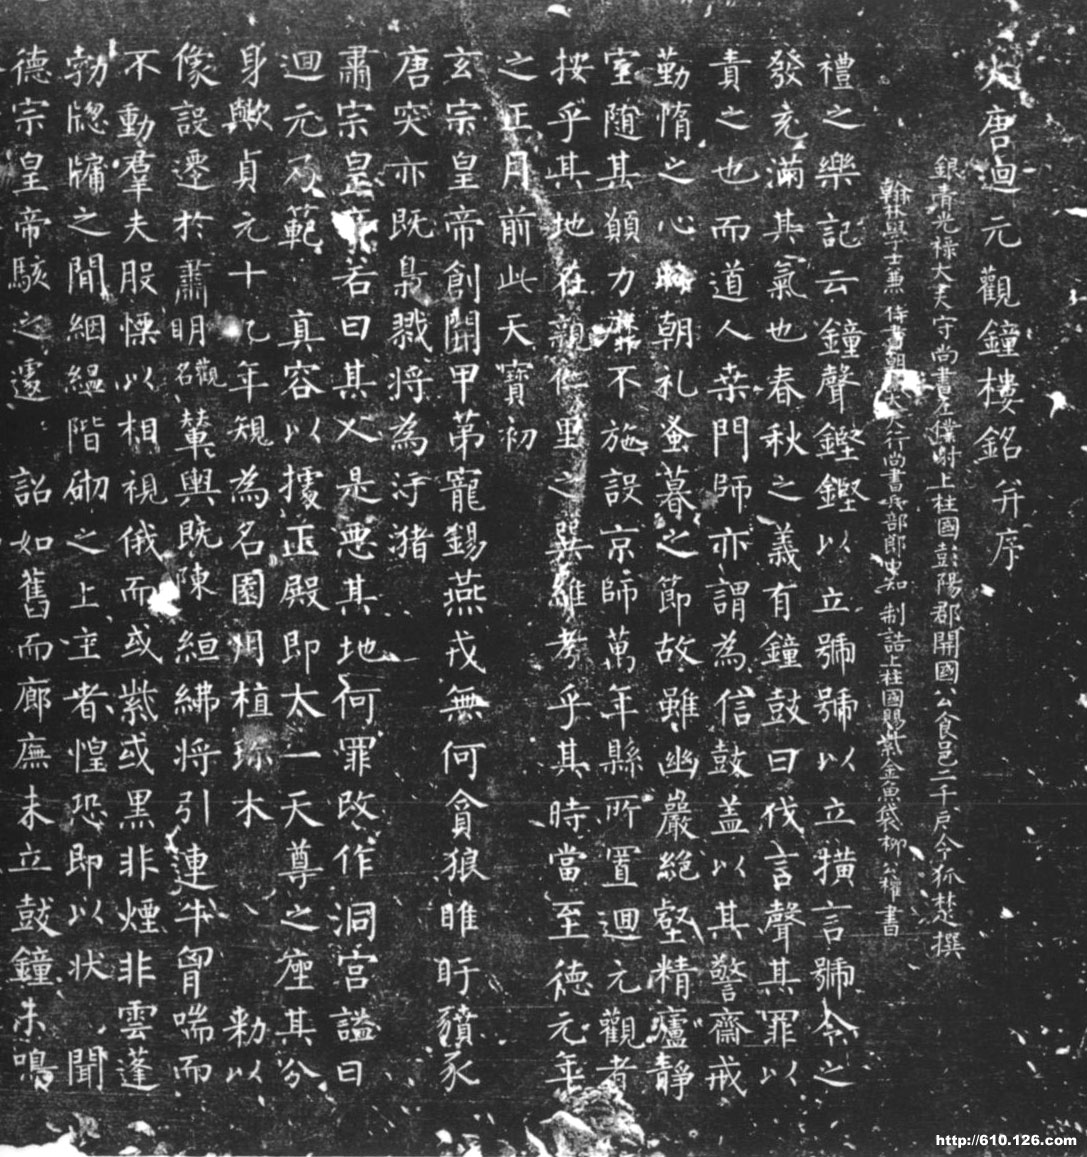 大唐迴元觀鐘樓銘并序
銀青光祿大夫守尚書左僕射上柱國彭陽郡開國公食邑二千戶令狐楚撰
翰林學士兼侍書朝大夫行尚書兵部郎中知制誥上柱國賜紫金魚袋柳公權書
禮之樂記云鐘聲鏗鏗以立號號以立橫言號令之
發充滿其氣也春秋之義有鐘鼓曰伐言聲其罪以
責之也而道人桒門師亦謂為信鼓盖以其警齋戒
勤惰之心時朝礼蚤暮之節故雖幽巖絕壑精廬靜
室隨其願力靡不施設京師萬年縣所置迴元觀者
按乎其地在親仁里之巽維考乎其時當至德元年
之正月前此天寶初
玄宗皇帝創開甲第寵錫燕戎無何貪狼睢盱豶豕
唐突亦既梟戮將為汙猪
肅宗皇帝若曰其人是惡其地何罪改作洞宮謚曰
迴元乃範真容以據正殿即太一天尊之座其分
身歟貞元十九年規為名園用植珎木敕以
像設遷於肅明觀名輦輿既陳絙紼將引連牛胷喘而
不動羣夫股慄以相視俄而或紫或黑非煙非雲蓬
勃牎牖之間絪縕階砌之上主者惶恐即以狀聞
德宗皇帝駭之遽詔如舊而廊廡未立鼓鐘未鳴
http://610.126.com